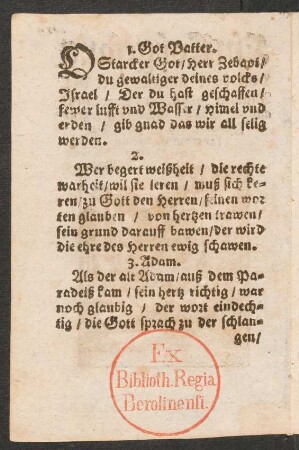 1. Got Vatter.
O Starcker Got / Herr Zebaot /
du gewaltiger deines volcks /
Israel / Der du hast geschaffen /
fewer lufft vnd Wasser / himel vnd
erden / gib gnad das wir all selig
werden.
2.
Wer begert weißheit / die rechte
warheit / wil sie leren / muß sich ke-
ren / zu Gott den Herren / seinen wor
ten glauben / von hertzen trawen /
sein grund darauff bawen / der wird
die ehre des Herren ewig schawen.
3. Adam.
Als der alt Adam / auß dem Pa-
radeiß kam / sein hertz richtig / war
noch glaubig / der wort eindech-
tig / die Gott sprach zu der schlan-
gen /
Ex
Biblioth. Regia
Berolinensi.